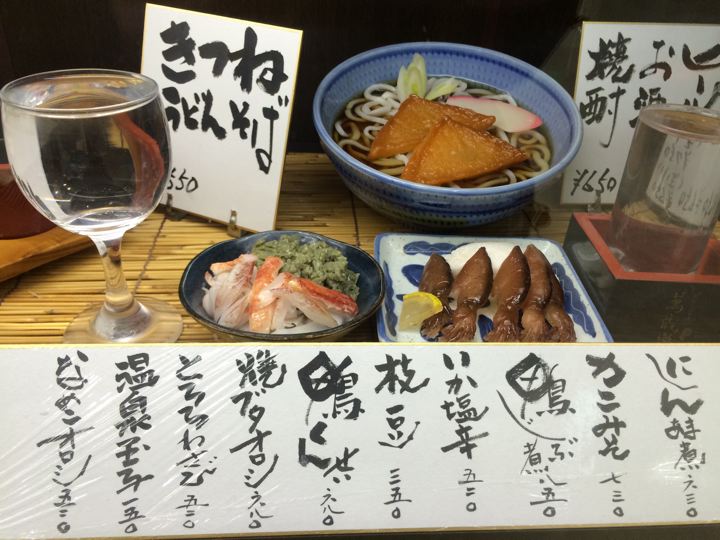 きつね
うどん
そば
550
ビール
お酒
焼酎
¥650
にしん甘煮 六三〇
カニみそ 七三〇
鴨しぶ煮 八五〇
いか塩辛 五二〇
枝豆 三五〇
鴨くんせい 六八〇
焼ブタオロシ 六八〇
とろろわさび 五二〇
温泉玉子 一五〇
なめこオロシ 五二〇